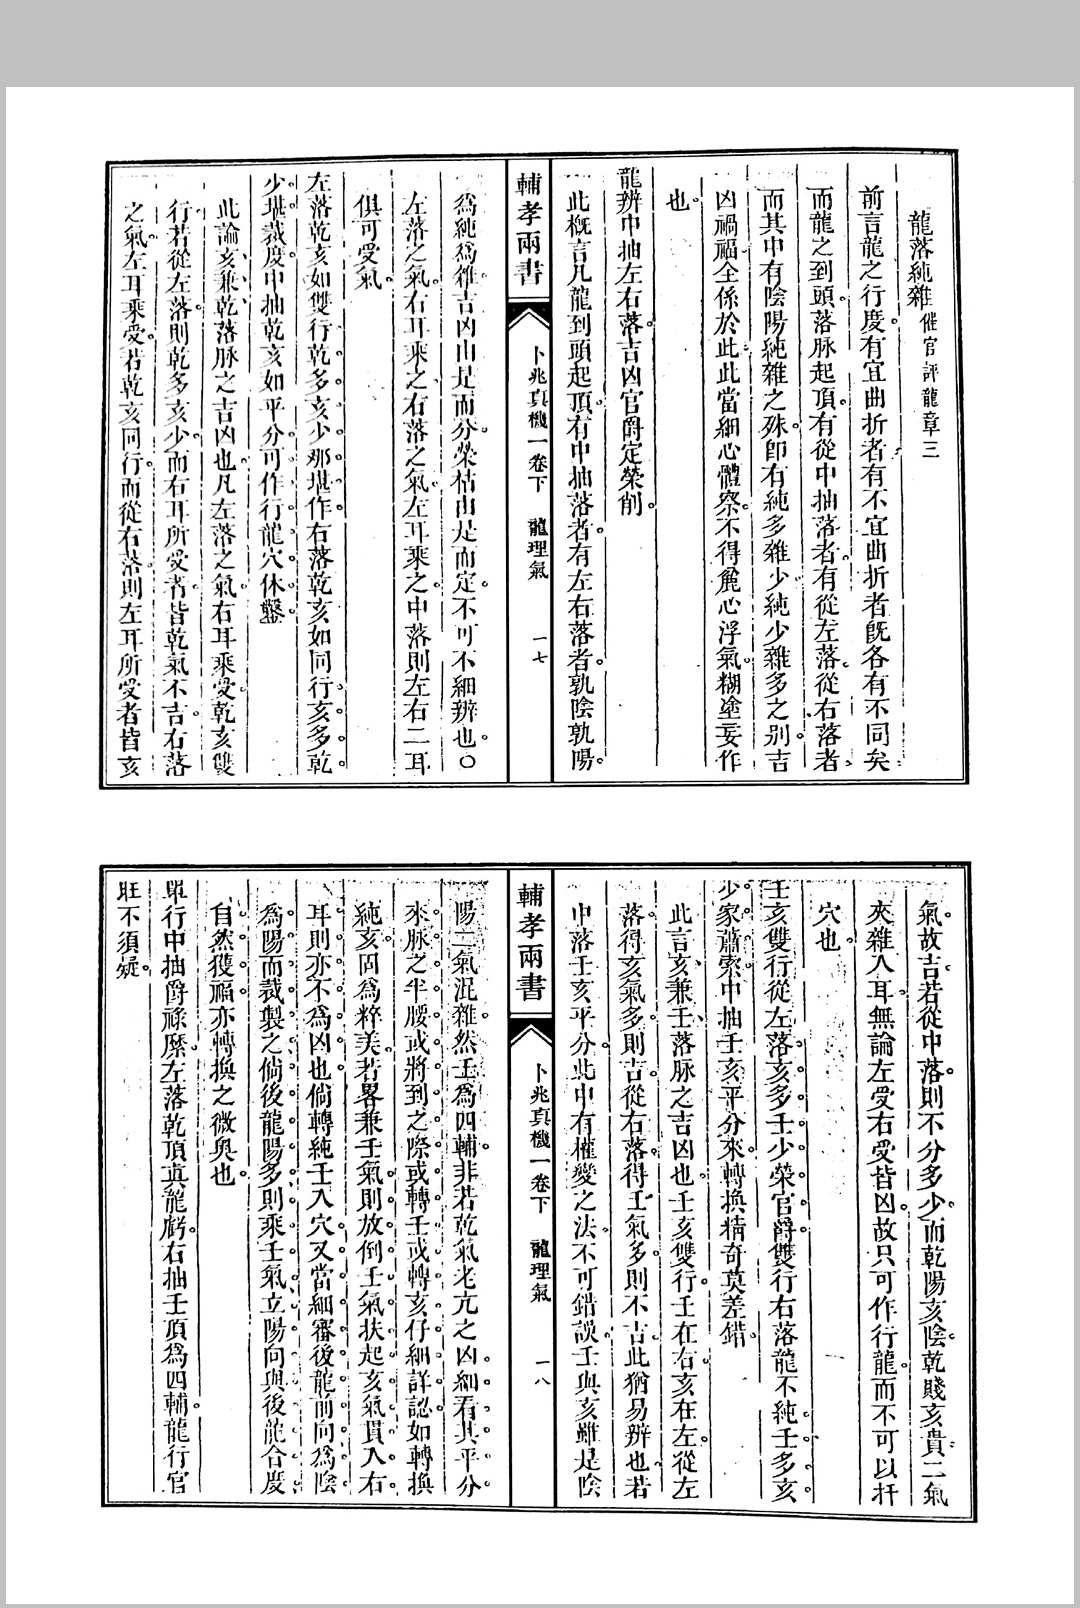 龍落純雜催官評龍章三
前言龍之行度有宜曲折者有不宜曲折者旣各有不同矣
而龍之到頭落脉起頂有從中抽落者有從左落從右落者
而其中有陰陽純雜之殊卽有純多雜少純少雜多之別吉
凶禍福全係於此此當細心體察不得麄心浮氣糊塗妄作
也
龍辨中抽左右落吉凶官爵定榮削
此槪言凡龍到頭起頂有中抽落者有左右落者孰陰孰陽
輔孝兩書
卜兆真機一卷下 龍理氣 一七
爲純爲雜吉凶由是而分榮枯由是而定不可不細辨也○
左落之氣右耳乘之右落之氣左耳乘之中落則左右二耳
俱可受氣
左落乾亥如雙行乾多亥少那堪作右落乾亥如同行亥多乾
少堪裁度中抽乾亥如平分可作行龍穴休鑿
此論亥兼乾落脉之吉凶也凡左落之氣右耳乘受乾亥雙
行若從左落則乾多亥少而右耳所受者皆乾氣不吉右落
之氣左耳乘受若乾亥同行而從右落則左耳所受者皆亥
氣故吉若從中落則不分多少而乾陽亥陰乾賤亥貴二氣
夾雜入耳無論左受右受皆凶故只可作行龍而不可以扦
穴也
壬亥雙行從左落亥多壬少榮官爵雙行右落龍不純壬多亥
少家蕭索中抽壬亥平分來轉換精奇莫差錯
此言亥兼壬落脉之吉凶也壬亥雙行壬在右亥在左從左
落得亥氣多則吉從右落得壬氣多則不吉此猶易辨也若
中落壬亥平分此中有權變之法不可錯誤壬與亥雖是陰
輔孝兩書
卜兆真機一卷下 龍理氣 一八
陽二氣混雜然壬爲四輔非若乾氣老亢之凶細看其平分
來脉之半腰或將到之際或轉壬或轉亥仔細詳認如轉換
純亥固爲粹美若畧兼壬氣則放倒壬氣扶起亥氣貫入右
耳則亦不爲凶也倘轉純壬入穴又當細審後龍前向爲陰
爲陽而裁製之倘後龍陽多則乘壬氣立陽向與後龍合度
自然獲福亦轉換之微奥也
單行中抽爵祿縻左落乾頂眞龍虧右抽壬頂爲四輔龍行官
旺不須疑